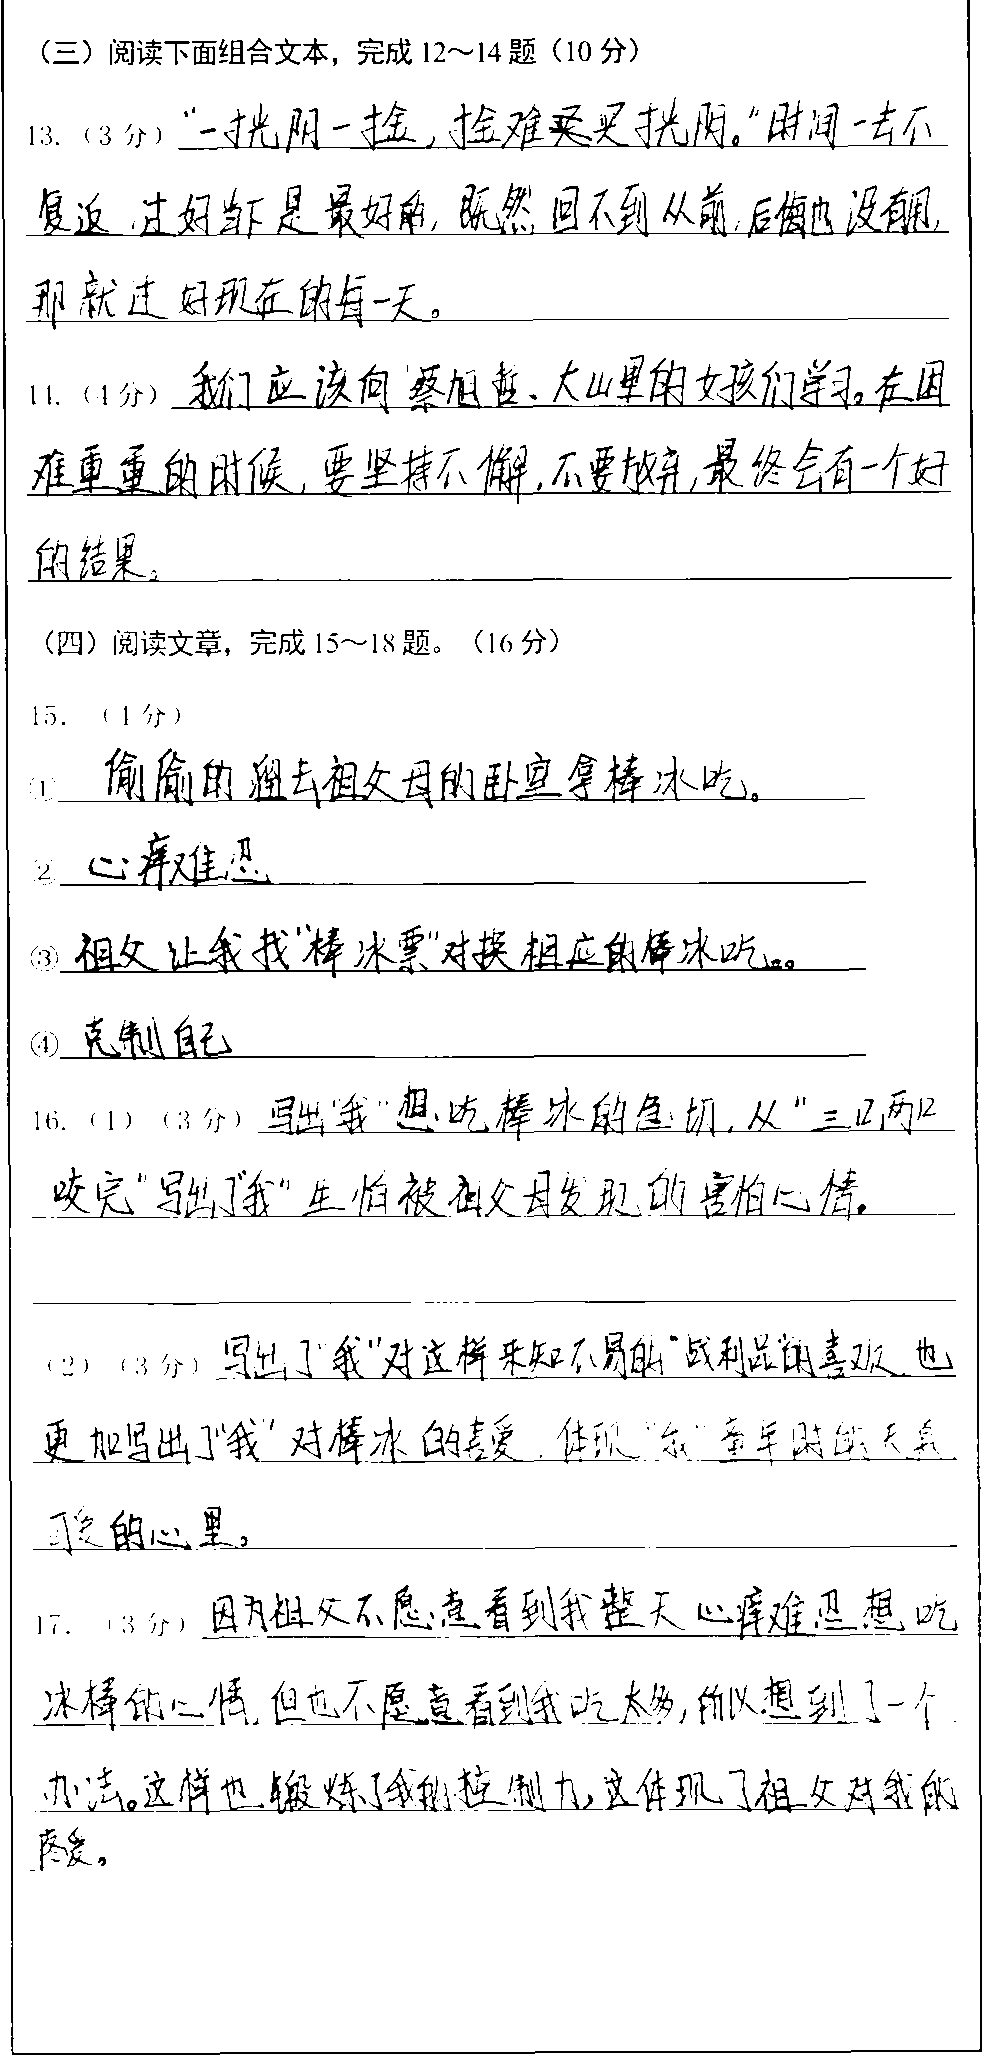 （三）阅读下面组合文本，完成12～14题（10分）
13.（3分）“一㧥阴一捦，捦难买㧥阴。”时间一去不
复返，过好当下是最好的，既然回不到从前，后悔也没有用，
那就过好现在的每一天。
14.（4分）我们应该向蔡旭哲、大山里的女孩们学习。在困
难重重的时候，要坚持不懈，不要放弃，最终会有一个好
的结果。
（四）阅读文章，完成15～18题。（16分）
15.（4分）
① 偷偷的溜去祖父母的卧室拿棒冰吃。
② 心痒难忍
③ 祖父让我找“棒冰票”对换相应的棒冰吃。。
④ 克制自己
16.（1）（3分）写出“我”想吃棒冰的急切，从“三口两口
咬完”写出了“我”生怕被祖父母发现的害怕心情。
（2）（3分）写出了“我”对这样来知不易的“战利品”的喜欢，也
更加写出了“我”对棒冰的喜爱，体现“我”童年时的天真
可爱的心里。
17.（3分）因为祖父不愿意看到我整天心痒难忍想吃
冰棒的心情，但也不愿意看到我吃太多，所以想到了一个
办法。这样也锻炼了我的控制力，这体现了祖父对我的
疼爱。